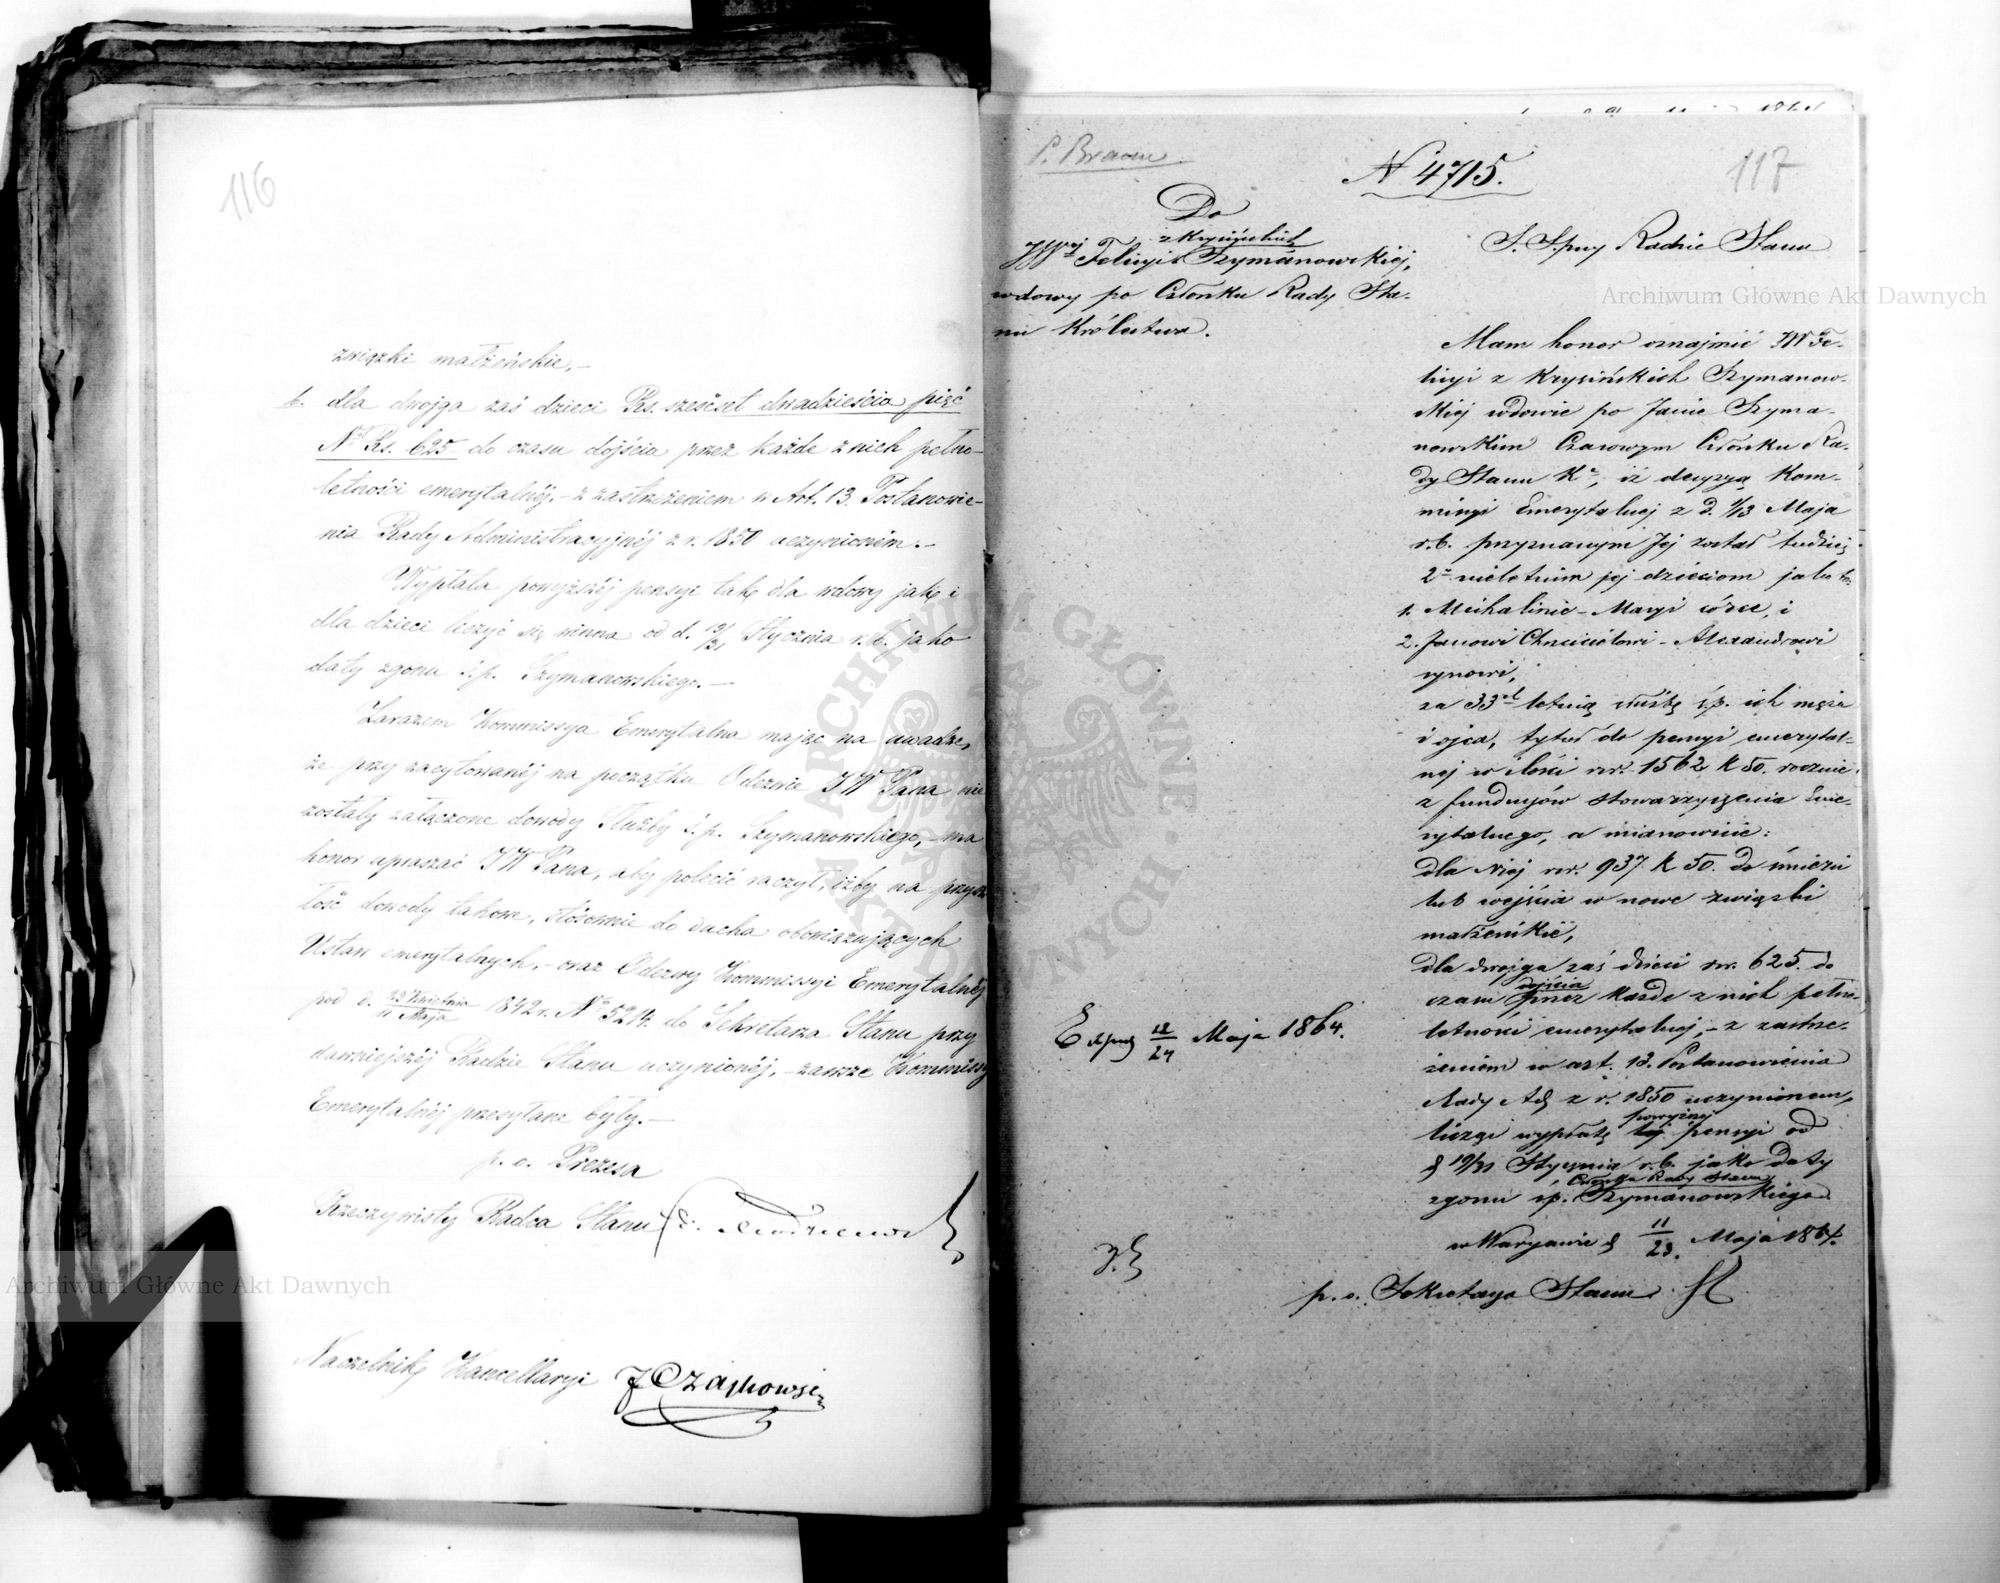 116
związki małżeńskie. —
b. dla dwojga zaś dzieci Rs. sześćset dwadzieścia pięć
No Rs. 625 do czasu dójścia przez każde z nich pełno-
letności emerytalnéj. - z zastrzeżeniem w Art. 13. Postanowie-
nia Rady Administracyjnéj z r. 1850 uczynioném. —
Wypłata powyższéj pensyi tak dla wdowy jak i
dla dzieci liczyć się winna od d. 19/31 Stycznia r. b. jako
daty zgonu ś. p. Szymanowskiego. —
Zarazem Kommissya Emerytalna mając na uwadze,
że przy zacytowanéj na początku Odezwie JW Pana nie
zostały załączone dowody Służby ś. p. Szymanowskiego, - ma
honor upraszać JW Pana, aby polecić raczył, iżby na przysz
łość dowody takowe, stósownie do ducha obowiązujących
Ustaw emerytalnych, - oraz Odezwy Kommissyi Emerytalnéj
pod d. 29 Kwietnia/11 Maja 1842 r. No 5214. do Sekretarza Stanu przy
dawniejszéj Radzie Stanu uczynionéj, - zawsze Kommissy
Emerytalnéj przesyłane były. —
p. o. Prezesa
Rzeczywisty Radca Stanu
Naczelnik Kancellaryi J Czajkowski
P. Braun
N 4715.
117
Do
z Krysińskich
JWej Felicyi Szymanowskiéj,
wdowy po Członku Rady Sta-
nu Królestwa.
S. Spny Radzie Stanu
Mam honor oznajmić JW Fe-
licyi z Krysińskich Szymanow-
skiej wdowie po Janie Szyma-
nowskim Czasowym Członku Ra-
dy Stanu Ka, iż decyzyą Kom-
misyi Emerytalnej z d. 1/13 Maja
r. b. przyznanym Jej został tudzież
2 nieletnim jej dzieciom jako to:
1. Michalinie - Maryi córce, i
2. Janowi Chrzcicielowi - Alexandrowi
synowi,
za 33 letnią służbę ś. p. ich męża
i ojca, tytuł do pensyi emerytal-
nej w ilości rsr. 1562 k 50. rocznie
z funduszów stowarzyszenia Eme-
rytalnego, a mianowicie:
dla Niej rsr. 937 k 50. do śmierci
lub wejścia w nowe związki
małżeńskie,
dla dwojga zaś dzieci rsr. 625. do
dojścia
czasu przez każde z nich pełno-
letności emerytalnej, - z zastrze-
żeniem w art. 13. Postanowienia
Rady Ad z r. 1850 uczynionem,
powyższej
licząc wypłatę tej pensyi od
d 19/31 Stycznia r. b. jako daty
Członka Rady Stanu
zgonu ś p. Szymanowskiego.
w Warszawie d 11/23. Maja 1864.
Exped 12/24 Maja 1864.
p. o. Sekretarza Stanu
Archiwum Główne Akt Dawnych
Archiwum Główne Akt Dawnych
ARCHIWUM GŁÓWNE AKT DAWNYCH